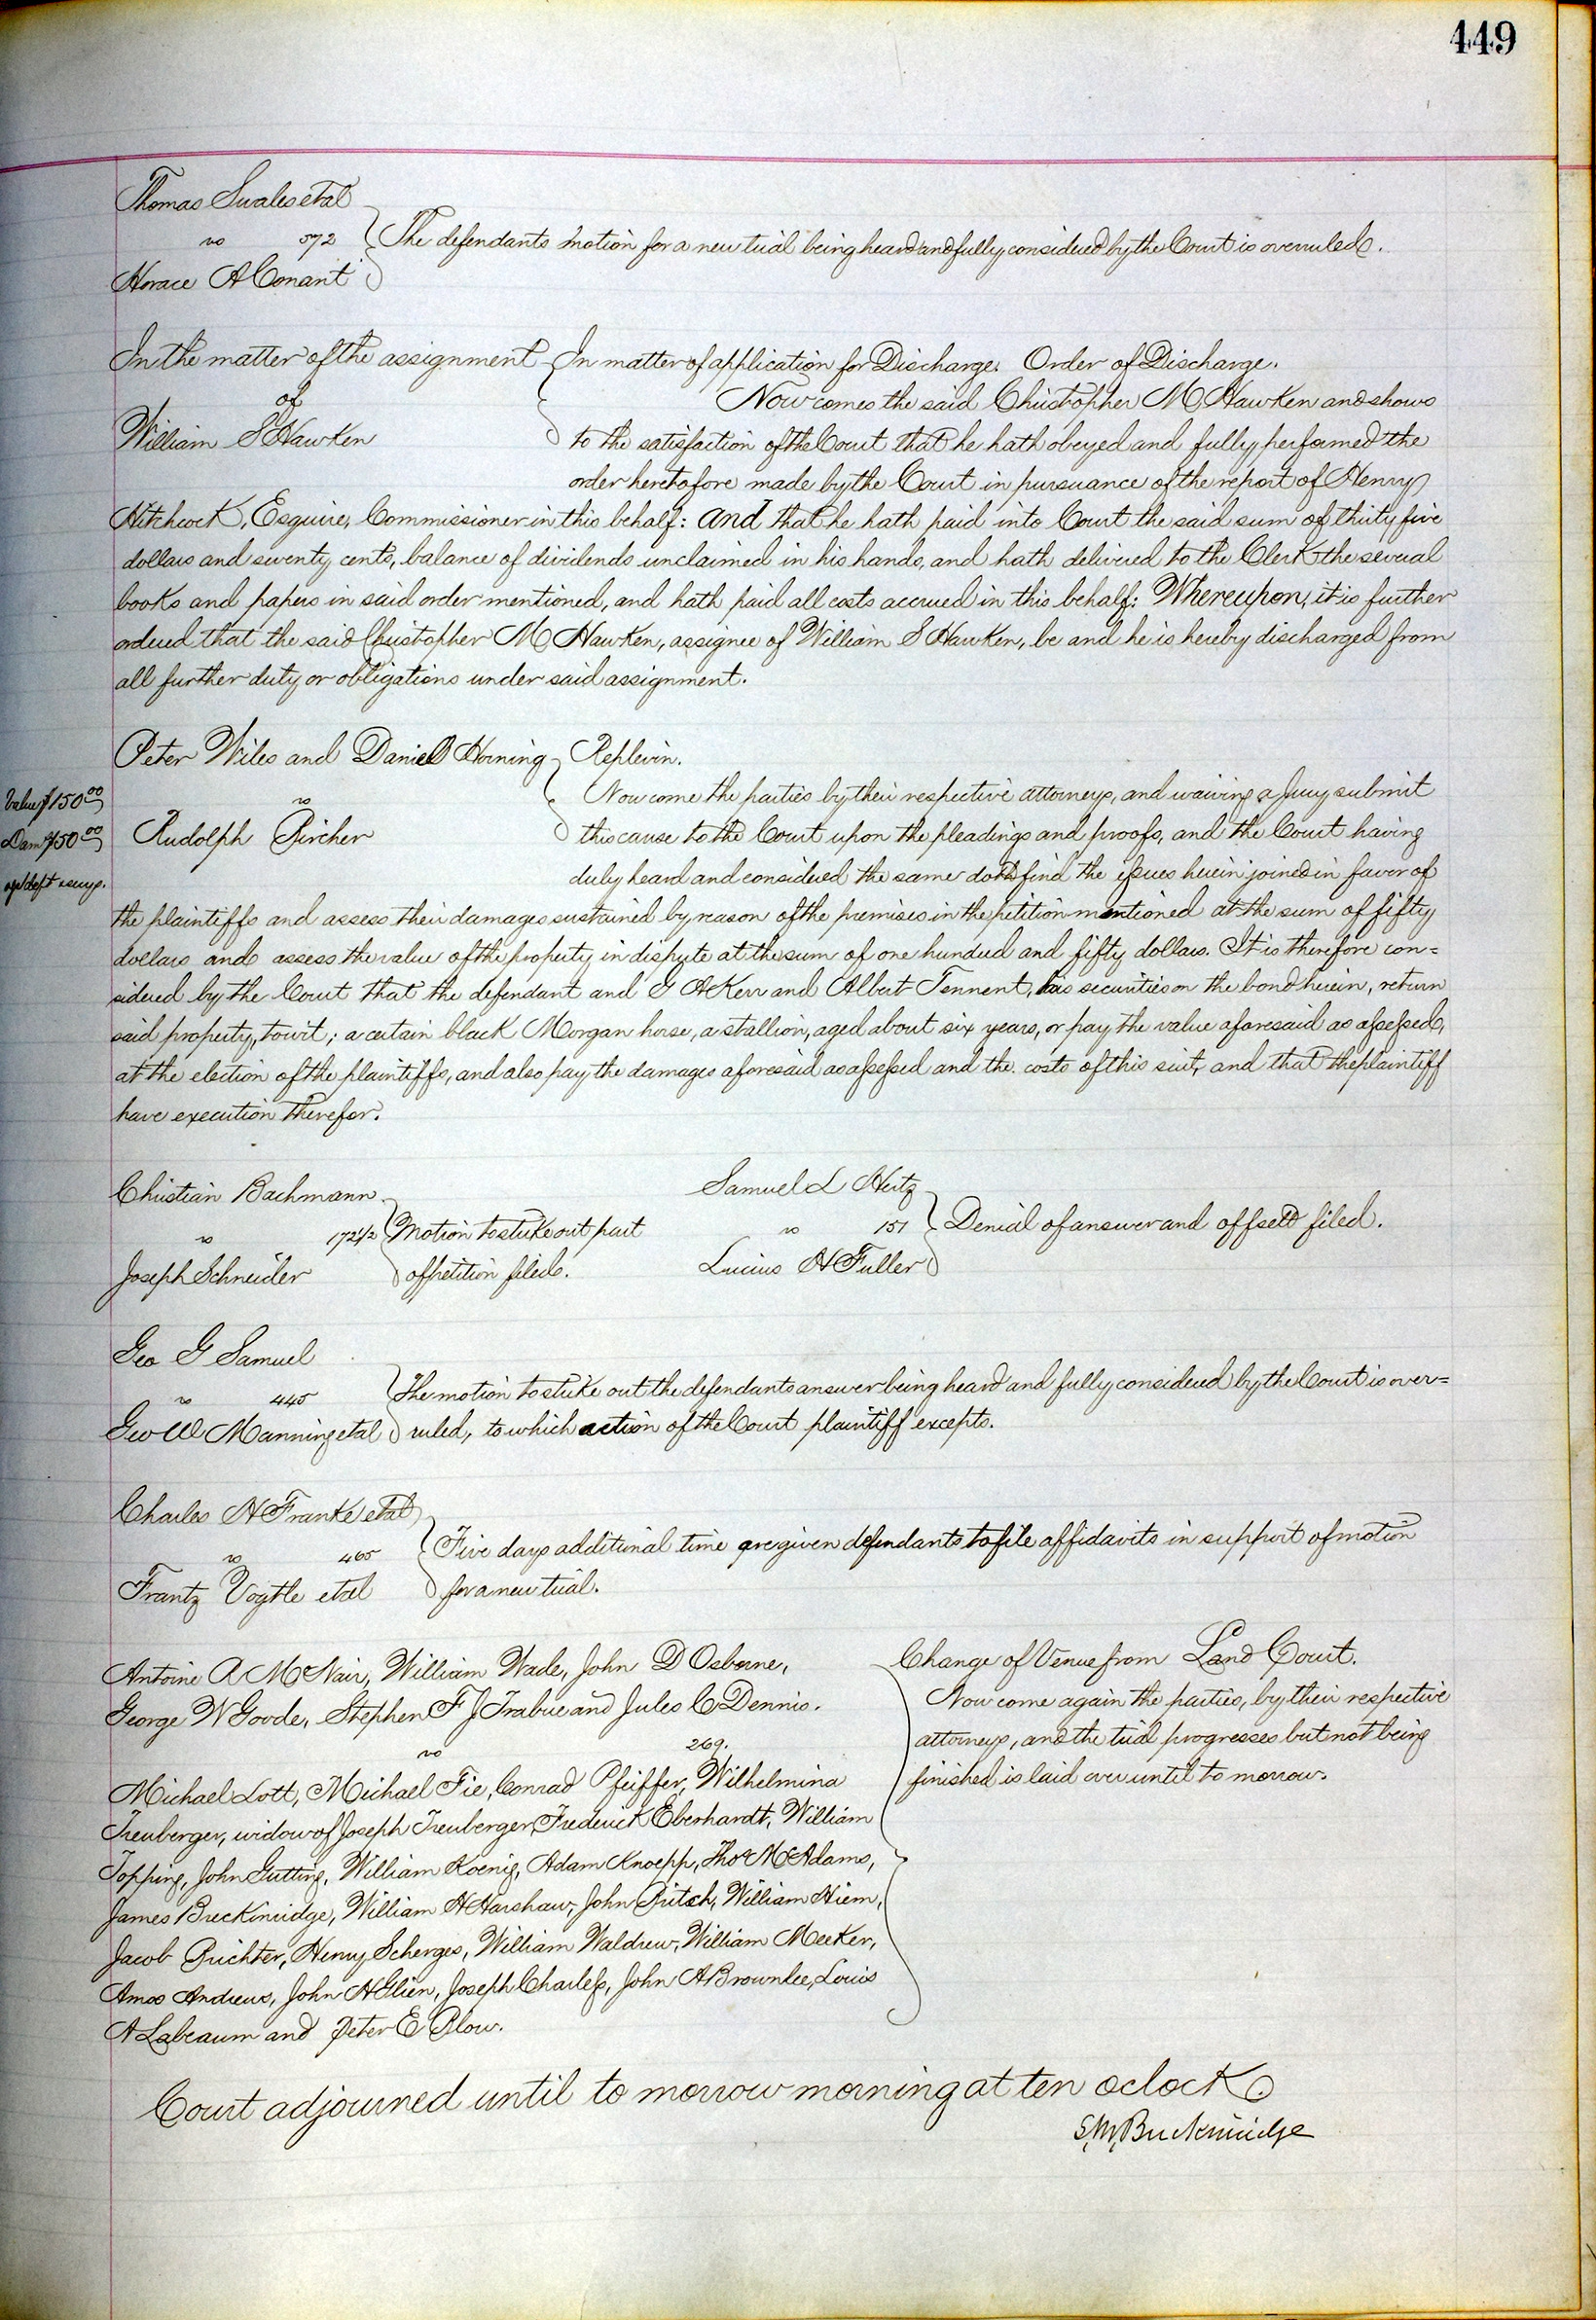 449
Thomas Swales et al
vs 572
Horace A Conant
The defendants motion for a new trial being heard and fully considered by the Court is overruled.
In the matter of the assignment
of
William S Hawken
In matter of application for Discharge. Order of Discharge.
Now comes the said Christopher M Hawken and shows
to the satisfaction of the Court that he hath obeyed and fully performed the
order heretofore made by the Court in pursuance of the report of Henry
Hitchcock, Esquire, Commissioner in this behalf: And that he hath paid into Court the said sum of thirty five
dollars and seventy cents, balance of dividends unclaimed in his hands, and hath delivered to the Clerk the several
books and papers in said order mentioned, and hath paid all costs accrued in this behalf: Whereupon, it is further
ordered that the said Christopher M Hawken, assignee of William S Hawken, be and he is hereby discharged from
all further duty or obligations under said assignment.
Peter Wiles and Daniel Horning
vs
Rudolph Pircher
Value $150.00
Dam $50.00
agst deft & secys.
Replevin.
Now come the parties by their respective attorneys, and waiving a Jury submit
this cause to the Court upon the pleadings and proofs, and the Court having
duly heard and considered the same doth find the issues herein joined in favor of
the plaintiffs and assess their damages sustained by reason of the premises in the petition mentioned at the sum of fifty
dollars and assess the value of the property in dispute at the sum of one hundred and fifty dollars. It is therefore con=
sidered by the Court that the defendant and G A Kerr and Albert Tennent, his securities on the bond herein, return
said property, towit; a certain black Morgan horse, a stallion, aged about six years, or pay the value aforesaid as assessed,
at the election of the plaintiffs, and also pay the damages aforesaid as assessed and the costs of this suit, and that the plaintiff
have execution therefor.
Christian Bachmann
vs 172 1/2
Joseph Schneider
Motion to strike out part
of petition filed.
Samuel L Hertz
vs 151
Lucius H Fuller
Denial of answer and offsett filed.
Geo G Samuel
vs 445
Geo W Manning et al
The motion to strike out the defendants answer being heard and fully considered by the Court is over=
ruled, to which action of the Court plaintiff excepts.
Charles H Franke et al
vs 465
Frantz Vogtle et al
Five days additional time are given defendants to file affidavits in support of motion
for a new trial.
Antoine R McNair, William Wade, John D Osborne,
George W Goode, Stephen F J Trabue and Jules C Dennis.
vs 269.
Michael Lott, Michael Fie, Conrad Pfeiffer, Wilhelmina
Treuberger, widow of Joseph Treuberger, Frederick Eberhardt, William
Topping, John Gutting, William Koenig, Adam Knoepp, Thos McAdams,
James Breckinridge, William H Harshaw, John Ritsch, William Hiem,
Jacob Richter, Henry Scherges, William Waldrew, William Meeker,
Amos Andrews, John H Glien, Joseph Charless, John A Brownlee, Louis
A Labeaum and Peter E Blow.
Change of Venue from Land Court.
Now come again the parties, by their respective
attorneys, and the trial progresses but not being
finished is laid over until to morrow.
Court adjourned until to morrow morning at ten oclock
S. M. Breckinridge